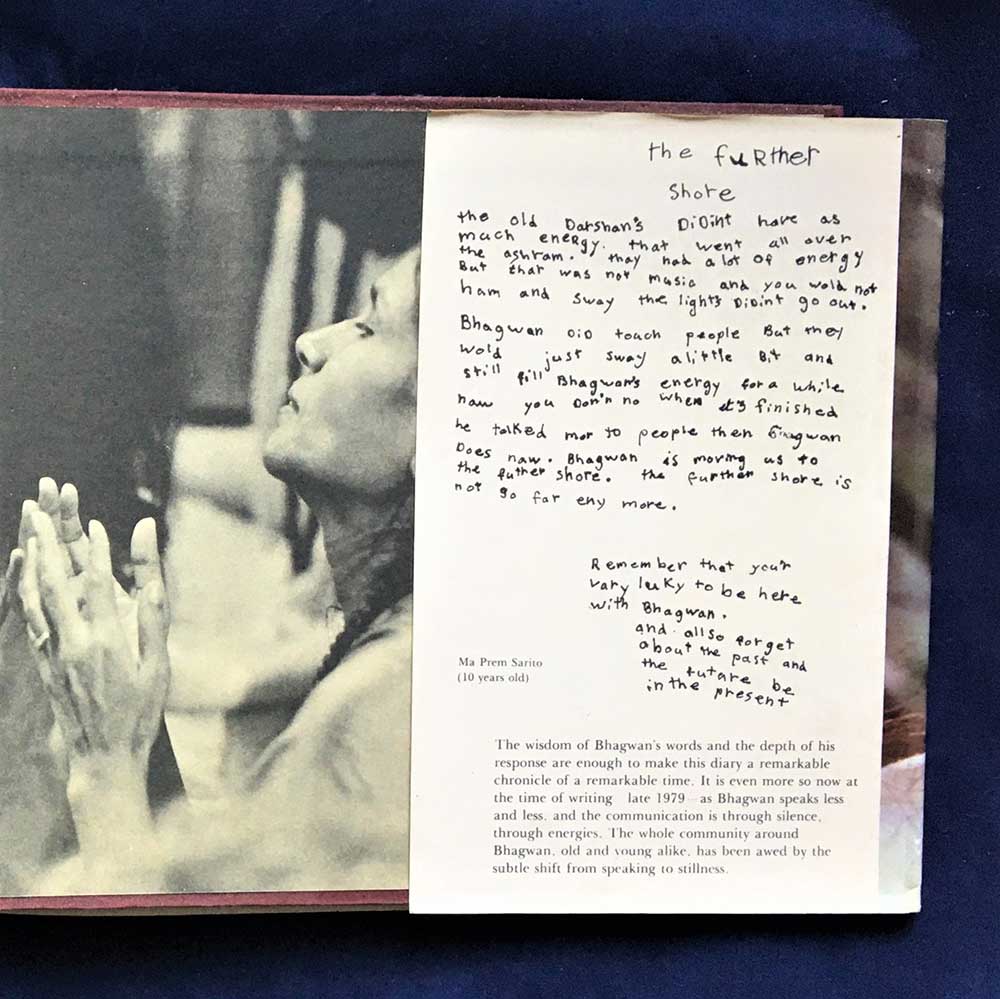 the fuRther
shore
the old Darshan's DiDint have as
much energy. that went all over
the ashram. thay had a lot of energy
But that was not music and you wold not
ham and sway the lights DiDint go out.
Bhagwan DiD touch people But they
wold just sway alittle Bit and
still fill Bhagwan's energy for a while
naw you Don'n no when it's finished
he talked mor to people then Bhagwan
Does naw. Bhagwan is moving us to
the futher shore. the further shore is
not so far eny more.
Remember that your
vary luky to be here
with Bhagwan.
and allso forget
about the past and
the futare be
in the present
Ma Prem Sarito
(10 years old)
The wisdom of Bhagwan's words and the depth of his
response are enough to make this diary a remarkable
chronicle of a remarkable time. It is even more so now at
the time of writing late 1979—as Bhagwan speaks less
and less, and the communication is through silence,
through energies. The whole community around
Bhagwan, old and young alike, has been awed by the
subtle shift from speaking to stillness.